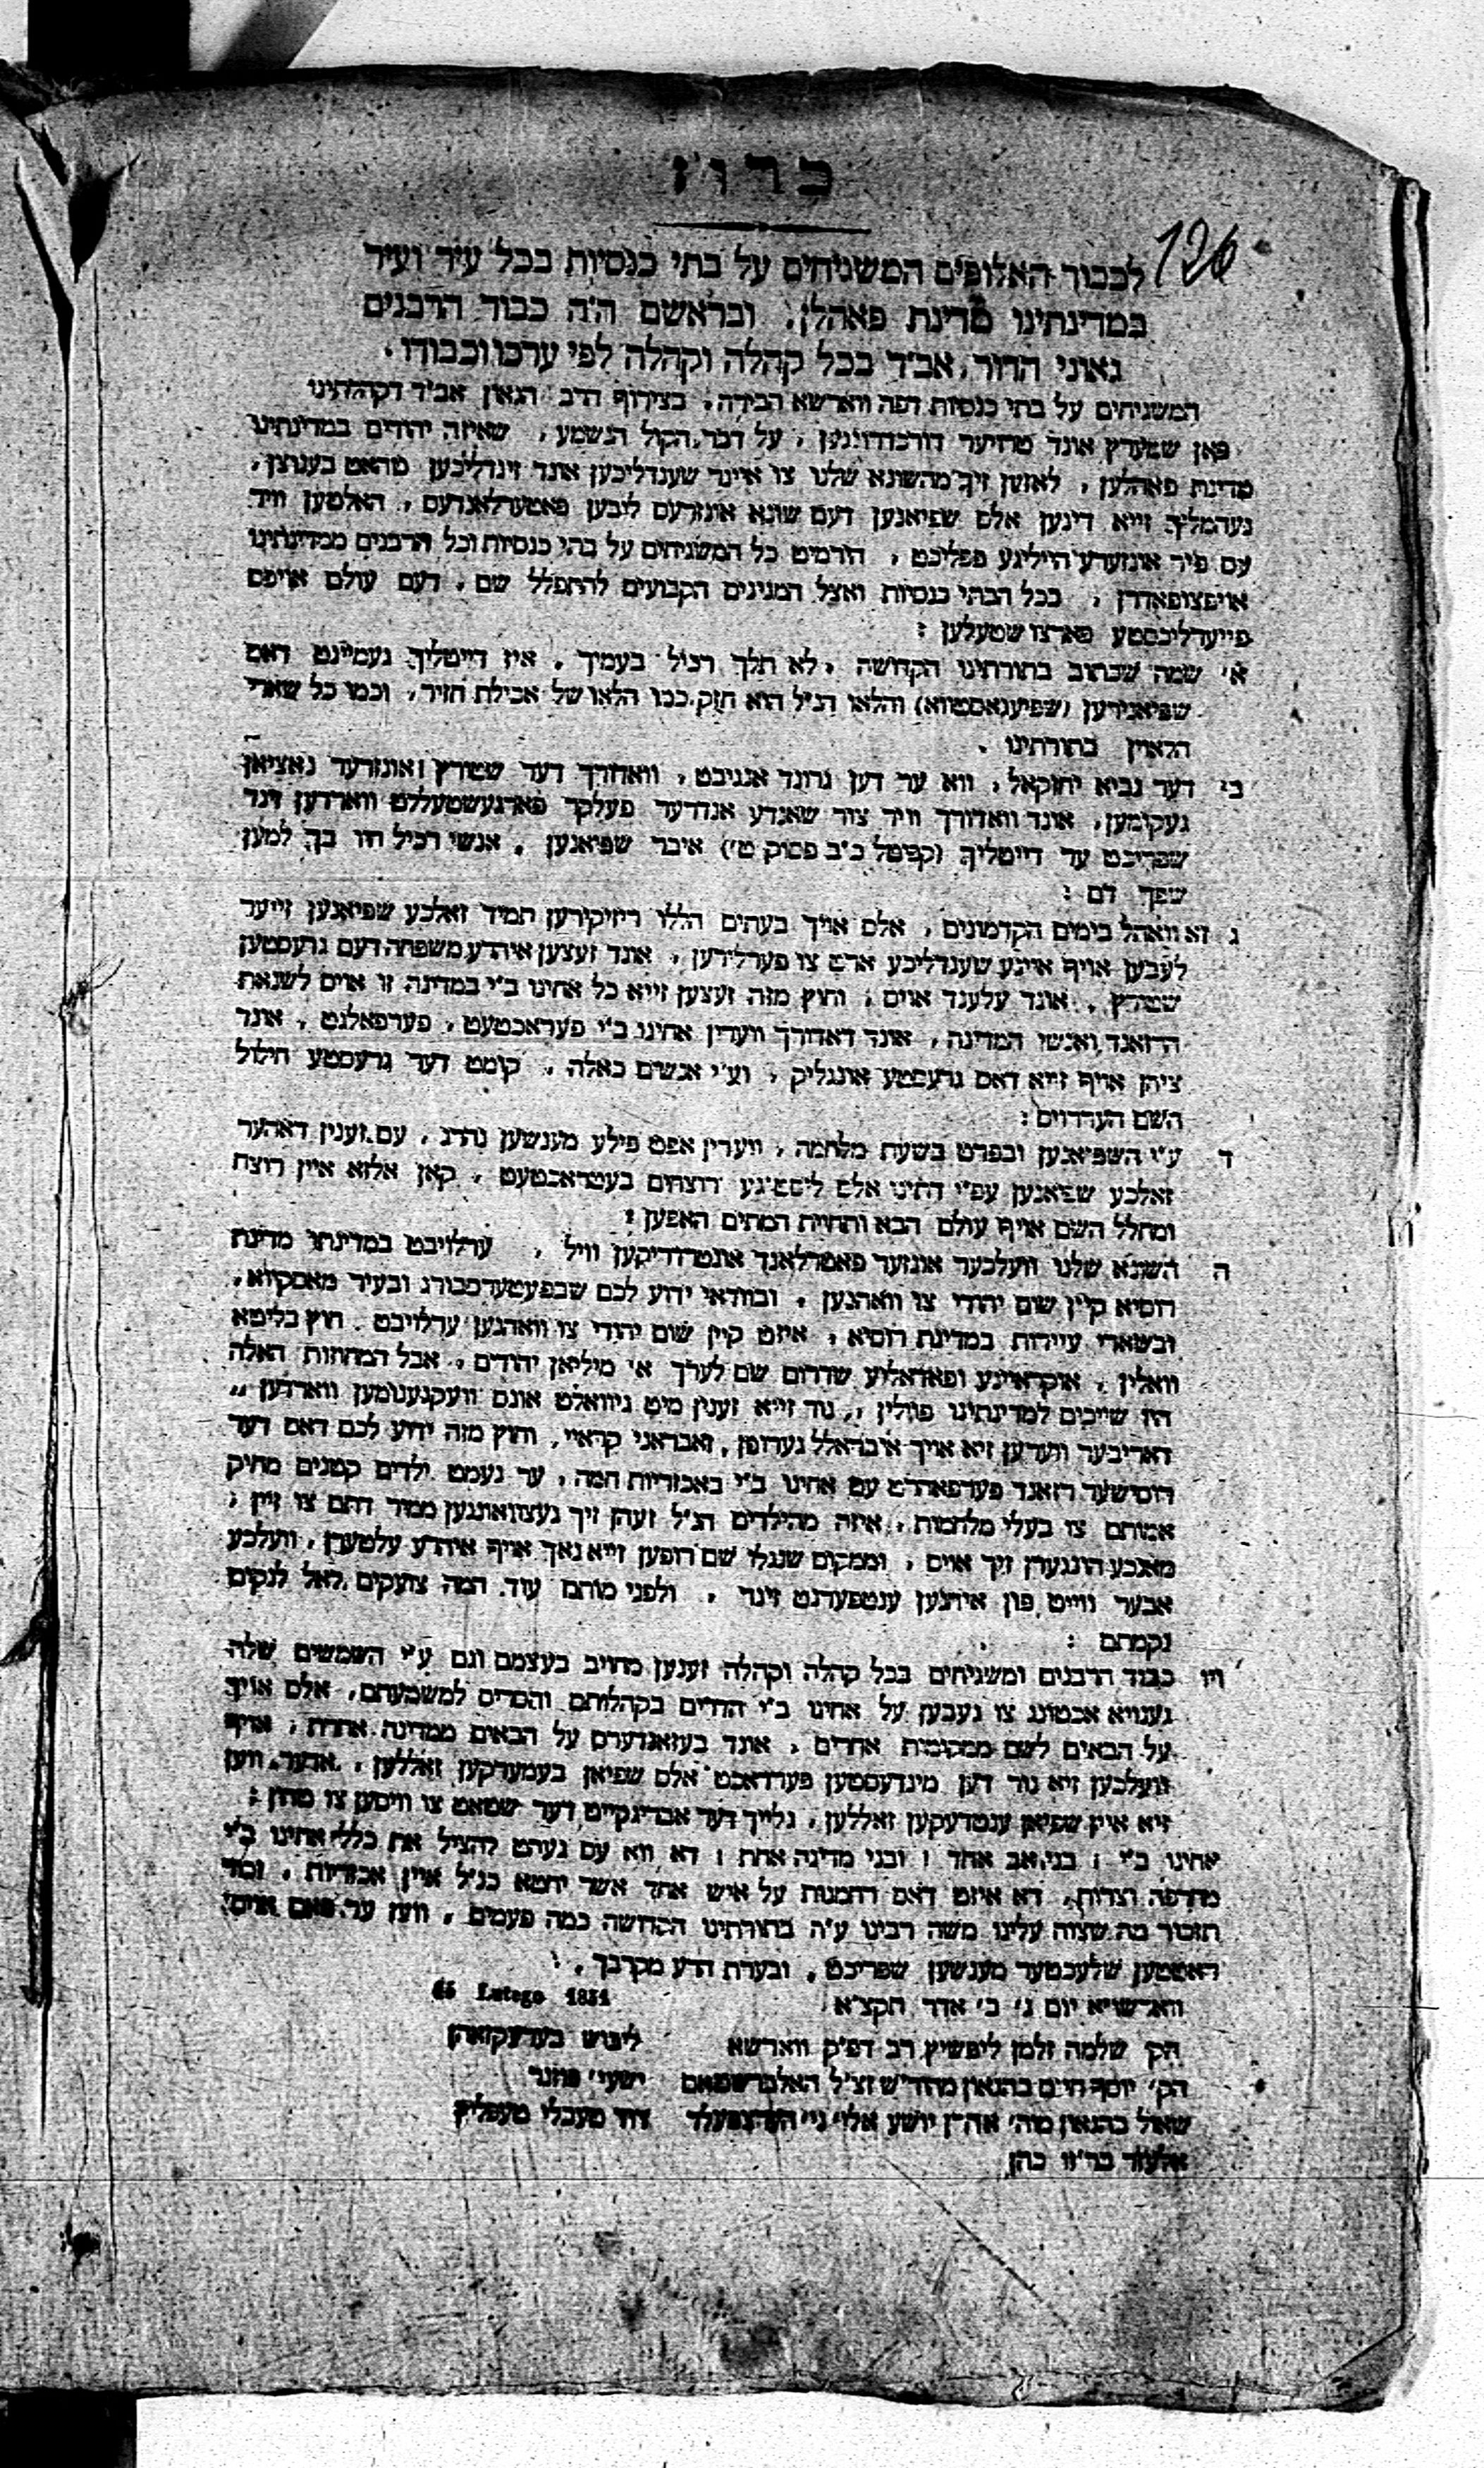 כרוז
126
לכבוד האלופים המשגיחים על בתי כנסיות בכל עיר ועיר
במדינתינו מדינת פאהלן, ובראשם ה"ה כבוד הרבנים
גאוני הדור, אב"ד בכל קהלה וקהלה לפי ערכו וכבודו.
המשגיחים על בתי כנסיות דפה ווארשא הבירה, בצירוף הרב הגאון אב"ד דקהלתינו
פאן שמערץ אונד טרויער דורכדרונגען, על דבר הקול הנשמע, שאיזה יהודים במדינתינו
מדינת פאהלען, לאזען זיך מהשונא שלנו צו איינר שענדליכען אונד זינדליכען טהאט בענוצן,
נעהמליך זייא דינען אלס שפיאנען דעם שונא אונזרעם ליבען פאטערלאנדעס, האלטען וויר
עס פיר אונזערע הייליגע פפליכט, הירמיט כל המשגיחים על בתי כנסיות וכל הרבנים ממדינתינו
אויפצופאדרן, בכל הבתי כנסיות ואצל המנינים הקבועים להתפלל שם, דעם עולם אויפס
פייערליכסטע פארצו שטעלען:
א' שמה שכתוב בתורתינו הקדושה, לא תלך רכיל בעמיך, איז דייטליך געמיינט דאס
שפיאנירען (שפיעגאסטווא) והלאו הנ"ל הוא חזק כמו הלאו של אכילת חזיר, וכמו כל שארי
הלאוין בתורתינו.
ב' דער נביא יחזקאל, ווא ער דען גרונד אנגיבט, וואדורך דער שטורץ אונזרער נאציאן
געקומען, אונד וואדורך וויר צור שאנדע אנדרער פעלקר פארגעשטעללט ווארדען זינד
שפריכט ער דייטליך (קפיטל כ"ב פסוק ט') איבר שפיאנען, אנשי רכיל היו בך למען
שפך דם:
ג זא וואהל בימים הקדמונים, אלס אויך בעתים הללו ריזיקירען תמיד זאלכע שפיאנען זייער
לעבען אויף איינע שענדליכע ארט צו פערלירען, אונד זעצען איהרע משפחה דעם גרעסטען
שמערץ, אונד עלענד אויס, וחוץ מזה זעצען זייא כל אחינו ב"י במדינה זו אויס לשנאת
הרזאנד ואנשי המדינה, אונד דאדורך ווערין אחינו ב"י פעראכטעט, פערפאלגט, אונד
ציהן אויף זייא דאס גרעסטע אונגליק, וע"י אנשים כאלה, קומט דער גרעסטע חילול
השם הערוויס:
ד ע"י השפיאנען ובפרט בשעת מלחמה, ווערין אפט פילע מענשען נהרג, עס זענין דאהער
זאלכע שפיאנען עפ"י דתינו אלס רוצחים בעטראכטעט, קאן אלזא איין רוצח
ומחלל השם אויף עולם הבא ותחיית המתים האפען?
ה השונא שלנו וועלכער אונזער פאטרלאנד אונטרדריקען וויל, ערלויבט במדינתו מדינת
רוסיא קיין שום יהודי צו וואהנען, ובוודאי ידוע לכם שבפעטערסבורג ובעיר מאסקווא,
ובשארי עיירות במדינת רוסיא, איזט קיין שום יהודי צו וואהנען ערלויבט. חוץ בליטא
וואלין, אוקראיינע ופאדאליע שדרים שם לערך א' מיליאן יהודים, אבל המחוזות האלה
היו שייכים למדינתינו פוילין,, נור זייא זענין מיט גיוואלט אונס וועקגענומען ווארדען,,
דאריבער ווערען זיא אויך איבראלל גערופן, זאבראני קראיי, וחוץ מזה ידוע לכם דאס דער
רוסישער רזאנד פערפאהרט עם אחינו ב"י באכזריות חמה, ער נעמט ילדים קטנים מחיק
אמותם צו בעלי מלחמות, איזה מהילדים הנ"ל זעהן זיך געצוואונגען ממיר דתם צו זיין,
מאנכע הונגערן זיך אויס, וממקום שנגלו שם רופען זייא נאך אויף איהרע עלטערן, וועלכע
אבער ווייט פון איהנען ענטפערנט זינד, ולפני מותם עוד המה צועקים לאל לנקום
נקמתם:
ויו כבוד הרבנים ומשגיחים בכל קהלה וקהלה זענען מחויב בעצמם וגם ע"י השמשים שלה
גענויא אכטונג צו געבען על אחינו ב"י הדרים בקהלותם והסרים למשמעתם, אלס אויך
על הבאים לשם ממקומות אחרים, אונד בעזאנדערס על הבאים ממדינה אחרת, אויף
וועלכען זיא נור דען מינדעסטען פערדאכט אלס שפיאן בעמערקען זאללען, אדער ווען
זיא איין שפיאן ענטדעקען זאללען, גלייך דער אבריגקייט דער שטאט צו וויסען צו טהון:
אחינו ב"י; בני אב אחד! ובני מדינה אחת! דא ווא עס געהט להציל את כללי אחינו ב"י
מחרפה וצרות, דא איזט דאס רחמנות על איש אחד אשר יחטא כנ"ל איין אכזריות, וכור
תזכור מה שצוה עלינו משה רבינו ע"ה בתורתינו הקדושה כמה פעמים, ווען ער פאם
שלעכטער מענשען שפריכט, ובערת הרע מקרבך.:
ווארשויא יום ג' ב' אדר תקצ"א 15 Lutego 1831
הק' שלמה זלמן ליפשיץ רב דפ"ק ווארשא ליבוש
הק' יוסף חיים בהגאון מהר"ש זצ"ל האלברשטאם ישעי' פוזנר
שאול בהגאון מוה' אהרן יושע אלי' ניי דוד טעבלי
אלעזר בר"זו כהן